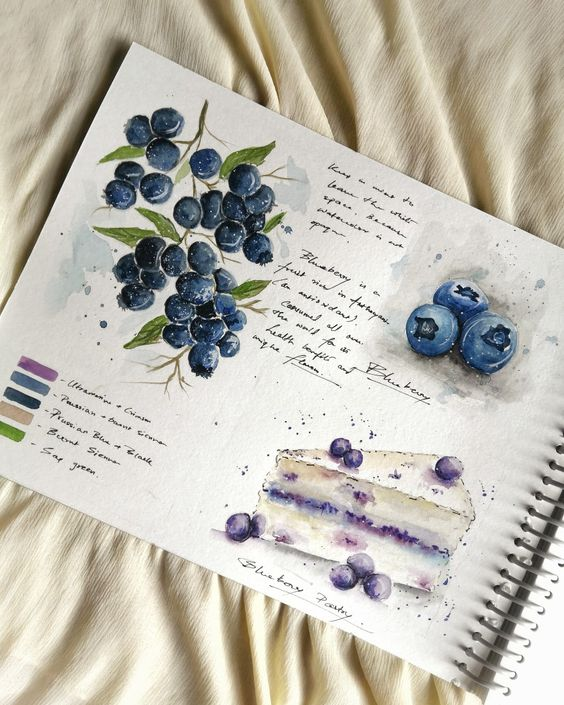 Keep in mind to
leave the white
space. Because
watercolor is not
opaque.
Blueberry is a
fruit rich in
(an antioxidant)
consumed all over
the world for its
health benefits and
unique flavour.
Blueberry
- Ultramarine + Crimson
- Prussian + Burnt Sienna
- Prussian Blue + Black
- Burnt Sienna
- Sap green.
Blueberry Pastry.